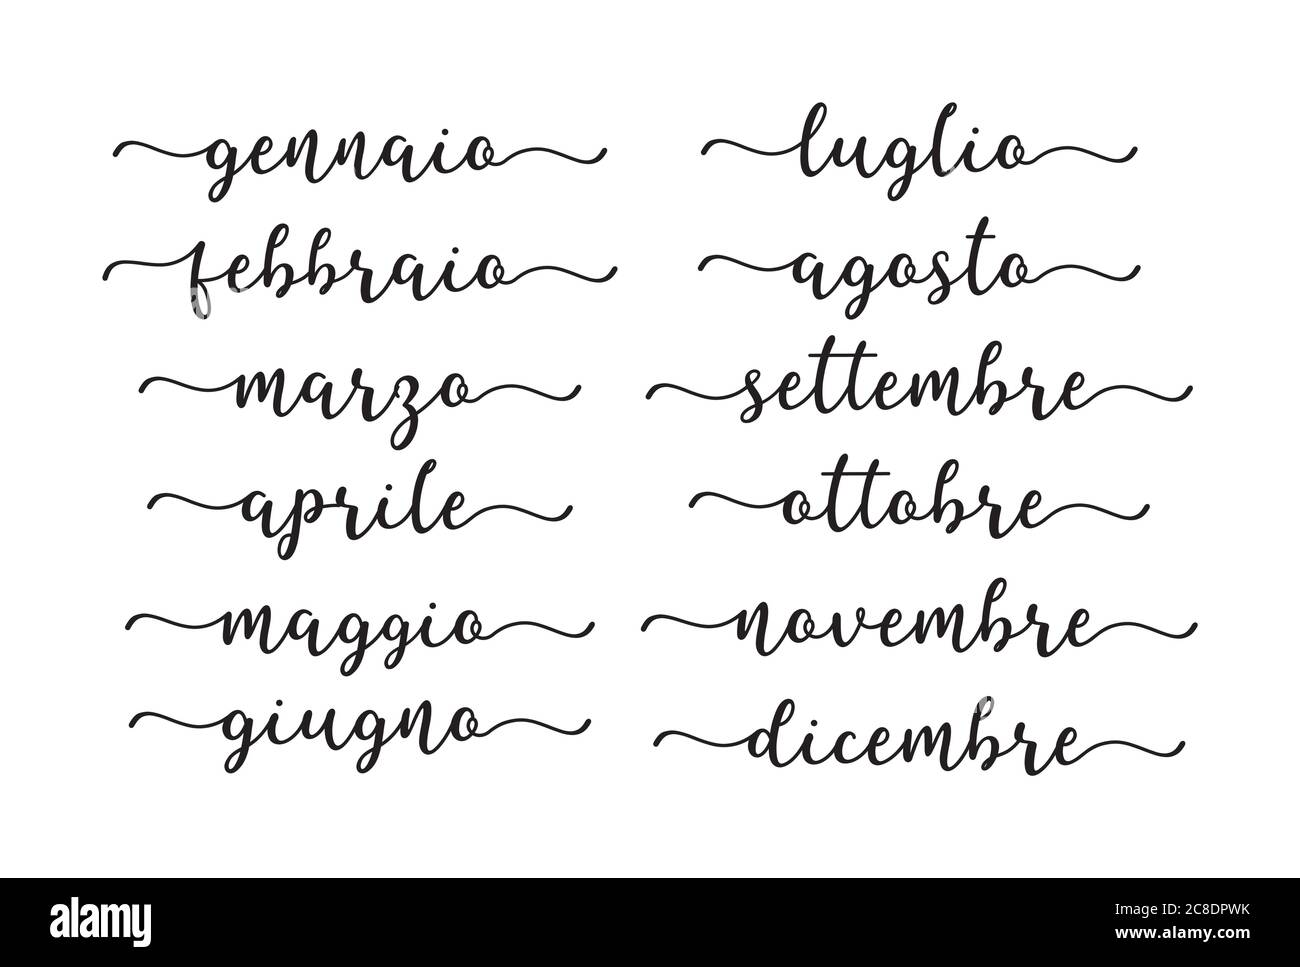 gennaio
febbraio
marzo
aprile
maggio
giugno
luglio
agosto
settembre
ottobre
novembre
dicembre
alamy
Image ID: 2C8DPWK
www.alamy.com